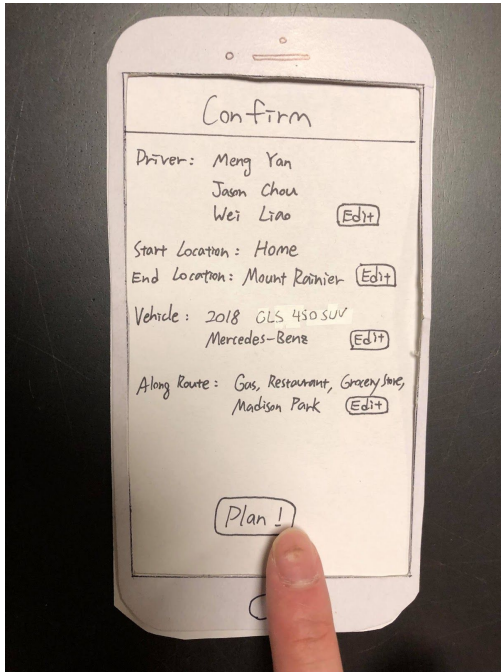 Confirm
Driver: Meng Yan
Jason Chou
Wei Liao Edit
Start Location: Home
End Location: Mount Rainier Edit
Vehicle: 2018 GLS 450 SUV
Mercedes-Benz Edit
Along Route: Gas, Restaurant, Grocery Store,
Madison Park Edit
Plan!